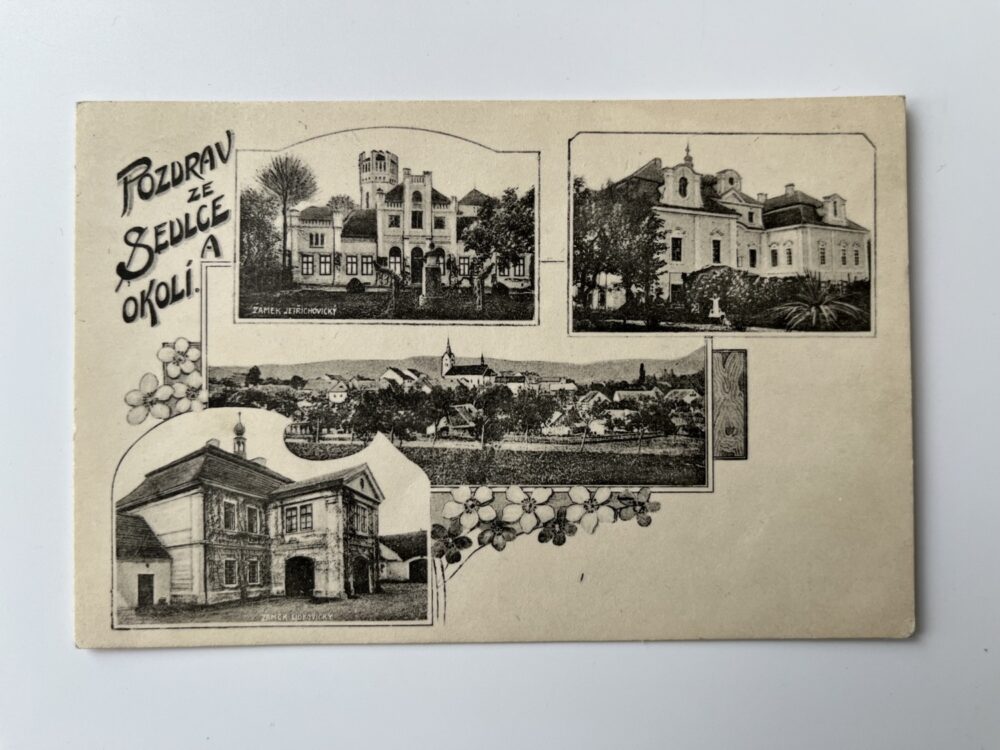 POZDRAV
ZE
SEDLCE
A
OKOLÍ.
ZÁMEK JETŘICHOVICKÝ
ZÁMEK